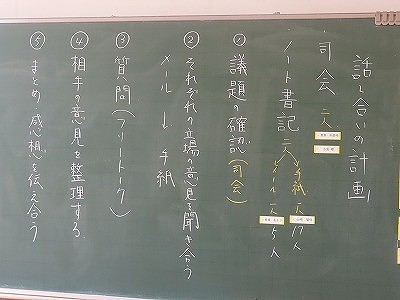 話し合いの計画
・司会 二人
・ノート書記 二人
手紙 一人 17人
メール 一人 5人
① 議題の確認(司会)
② それぞれの立場の意見を聞き合う
メール ↔ 手紙
③ 質問(フリートーク)
④ 相手の意見を整理する
⑤ まとめ・感想を伝え合う